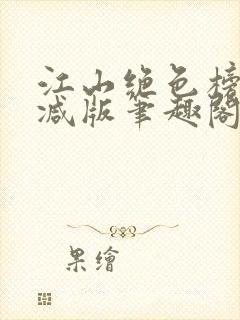 江山绝色榜
减版笔趣阁
果繪